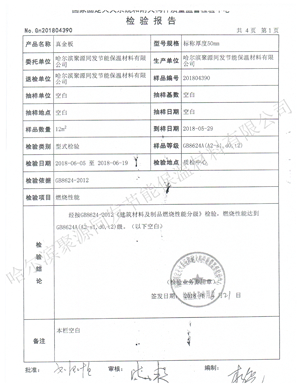 检 验 报 告
No.Gn201804390 共 4 页 第 1 页
产品名称 真金板 型号 标称厚度50mm
委托单位 哈尔滨聚源同发节能保温材料有限公司 生产单位 哈尔滨聚源同发节能保温材料有限公司
送检单位 哈尔滨聚源同发节能保温材料有限公司 样品编号 201804390
抽样单位 空白 抽样基数 空白
抽样地点 空白 抽样日期 空白
样品数量 12m² 到样日期 2018-05-29
检验类别 型式检验 样品等级 GB8624A(A2-s1,d0,t2)
检验日期 2018-06-05 至 2018-06-19 检验地点 质检中心
检验依据 GB8624-2012
检验项目 燃烧性能
检验结论
经按GB8624-2012《建筑材料及制品燃烧性能分级》检验，燃烧性能达到
GB8624A(A2-s1,d0,t2)级。（以下空白）
（检验业务专用章）
签发日期：2018
备注 本栏空白
批准： 审核： 编制：
哈尔滨聚源同发节能保温材料有限公司